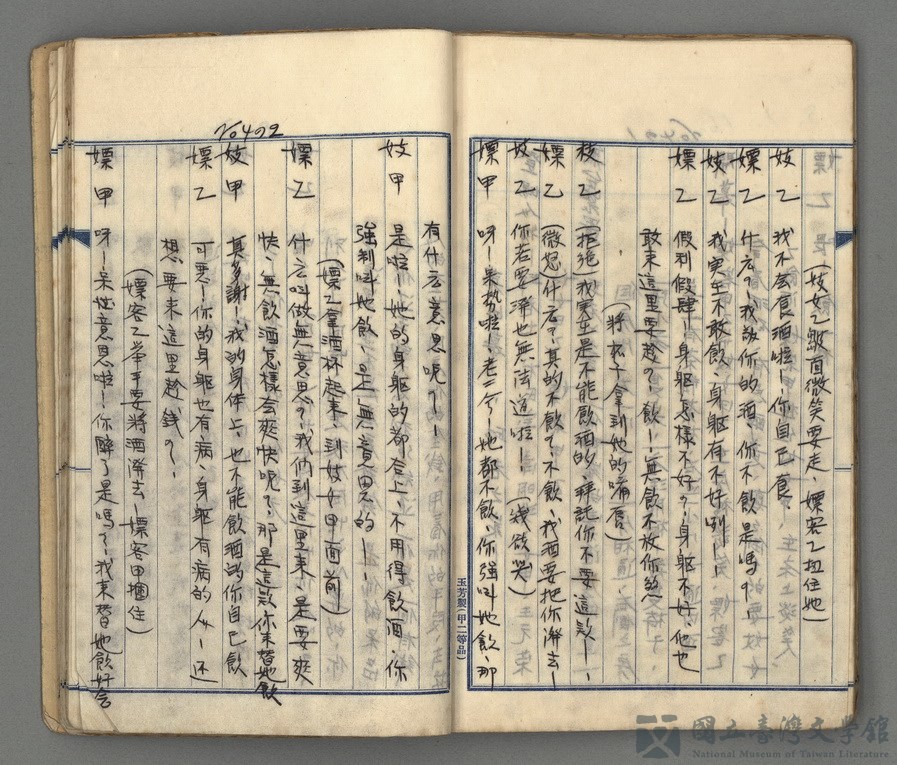 (妓女乙皺面微笑要走、嫖客乙扭住她)
妓乙 我不去食酒啦!你自己食、
嫖乙 什么?我敬你的酒、你不飲是嗎?
妓乙 我实在不敢飲、身軀有不好咧!
嫖乙 假利假肆!身軀怎樣不好?身軀不好、他也
敢來這里要趁?飲!無飲不放你煞
(將杯子拿到她的嘴唇)
妓乙 (拒絕)我实在是不能飲酒的、拜託你不要這款!
嫖乙 (微怒)什么?真的不飲?不飲、我酒要把你潑去!
妓乙 你若要潑也無法道啦!(幾欲哭)
嫖甲 呀!呆勢啦!老三今!她都不飲、你強叫她飲、那
有什么意思呢?!
妓甲 是啦!她的身軀的都合上、不用得飲酒、你
強制叫她飲、是上無意思的!
(嫖乙拿酒杯起來、到妓女甲面前)
嫖乙 什么叫做無意思?我們到這里來、是要爽
快、無飲酒怎樣会爽快呢?那是這款你來替她飲
妓甲 真多謝!我的身体上、也不能飲酒的你自己飲
嫖乙 可惡!你的身軀也有病、身軀有病的人!还
想要來這里趁錢?!
(嫖客乙举手要將酒潑去!嫖客甲擋住)
嫖甲 呀!呆性意思啦!你醉了是嗎?我來替她飲好否
No 4 の 2
玉芳製(甲二等品)
國立臺灣文學館
National Museum of Taiwan Literature